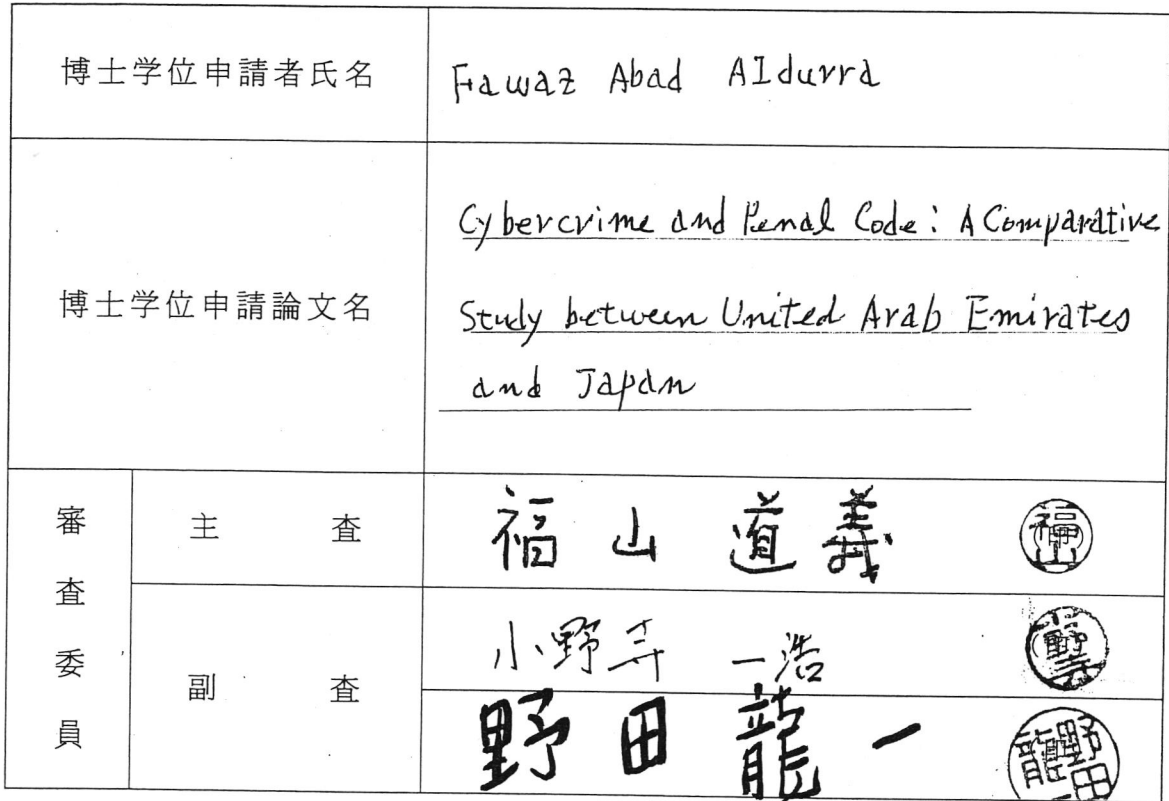 博士学位申請者氏名
Fawaz Abad AIdurra
博士学位申請論文名
Cybercrime and Penal Code: A Comparative
Study between United Arab Emirates
and Japan
審査委員
主査
福山道義
福山
副査
小野寺一浩
小野寺
野田龍一
野田龍一